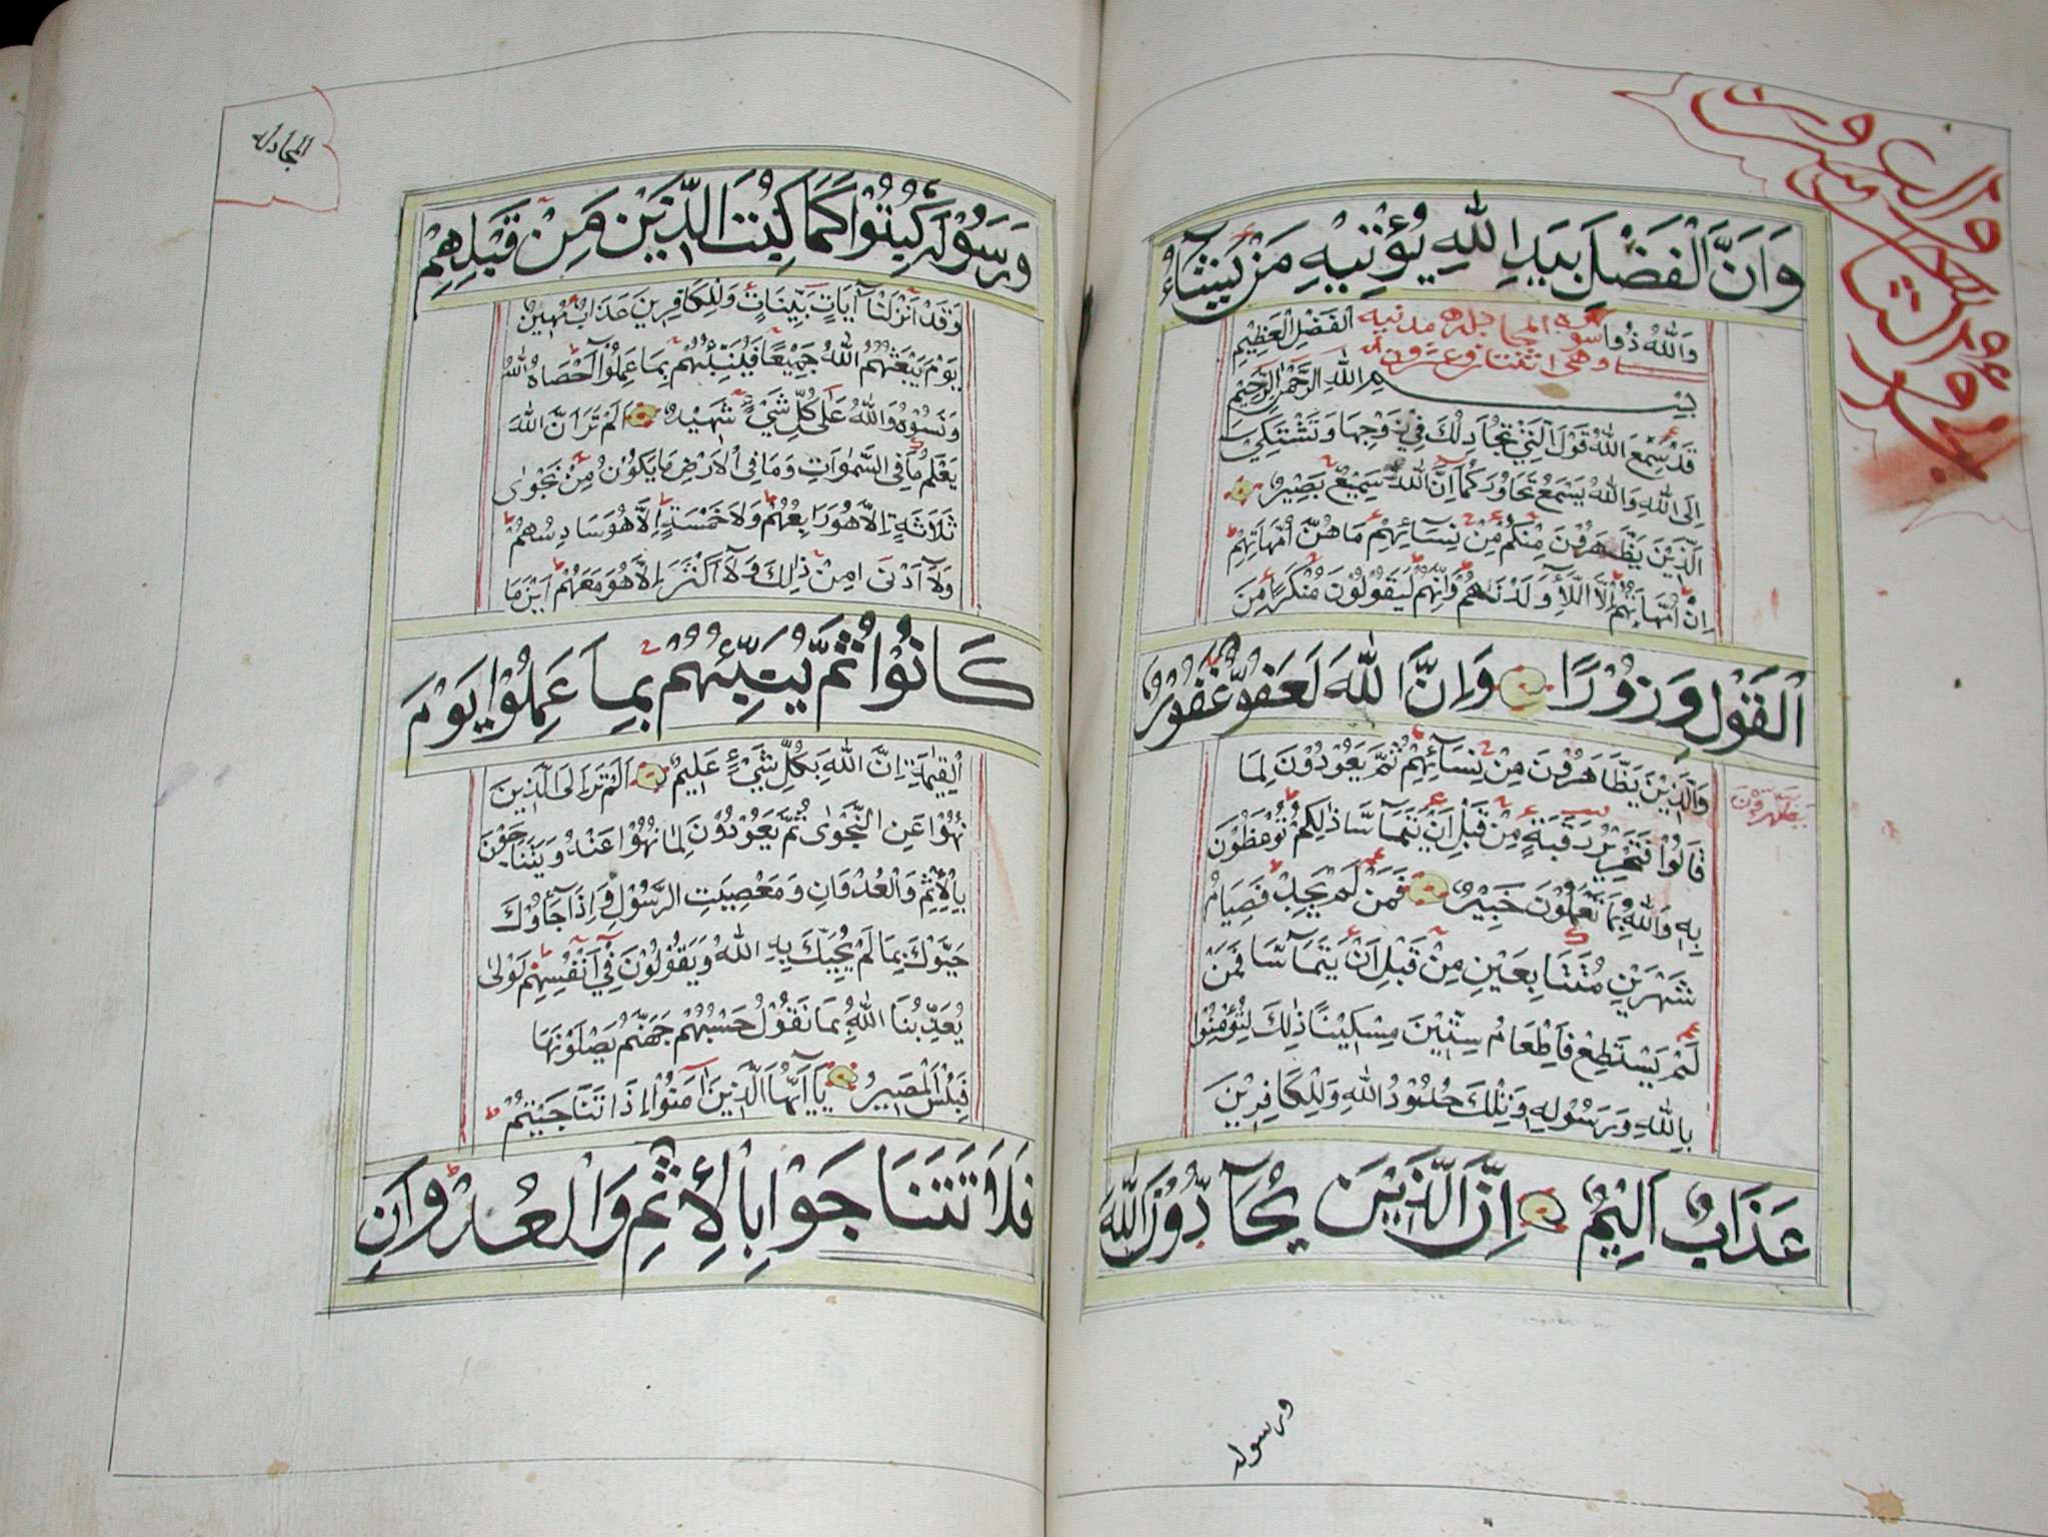 وَاَنَّ الْفَضْلَ بِيَدِ اللّٰهِ يُؤْتِيْهِ مَنْ يَشَآءُ
وَاللّٰهُ ذُوا الْفَضْلِ الْعَظِيْمِ
سورة المجادلة مدنية
وهى اثنتان وعشرون اٰية
بِسْمِ اللّٰهِ الرَّحْمٰنِ الرَّحِيْمِ
قَدْ سَمِعَ اللّٰهُ قَوْلَ الَّتِيْ تُجَادِلُكَ فِيْ زَوْجِهَا وَتَشْتَكِيْ
اِلَى اللّٰهِ وَاللّٰهُ يَسْمَعُ تَحَاوُرَكُمَا اِنَّ اللّٰهَ سَمِيْعٌ بَصِيْرٌ
اَلَّذِيْنَ يَظَّهَرُوْنَ مِنْكُمْ مِنْ نِسَآئِهِمْ مَا هُنَّ اُمَّهَاتِهِمْ
اِنْ اُمَّهَاتُهُمْ اِلَّا اللَّآءِ وَلَدْنَهُمْ وَاِنَّهُمْ لَيَقُوْلُوْنَ مُنْكَرًا مِنَ
الْقَوْلِ وَزُوْرًا وَاِنَّ اللّٰهَ لَعَفُوٌّ غَفُوْرٌ
وَالَّذِيْنَ يَظَّاهَرُوْنَ مِنْ نِسَآئِهِمْ ثُمَّ يَعُوْدُوْنَ لِمَا
قَالُوْا فَتَحْرِيْرُ رَقَبَةٍ مِنْ قَبْلِ اَنْ يَتَمَآسَّا ذٰلِكُمْ تُوْعَظُوْنَ
بِهٖ وَاللّٰهُ بِمَا تَعْمَلُوْنَ خَبِيْرٌ فَمَنْ لَمْ يَجِدْ فَصِيَامُ
شَهْرَيْنِ مُتَتَابِعَيْنِ مِنْ قَبْلِ اَنْ يَتَمَآسَّا فَمَنْ
لَمْ يَسْتَطِعْ فَاِطْعَامُ سِتِّيْنَ مِسْكِيْنًا ذٰلِكَ لِتُؤْمِنُوْا
بِاللّٰهِ وَرَسُوْلِهٖ وَتِلْكَ حُدُوْدُ اللّٰهِ وَلِلْكَافِرِيْنَ
عَذَابٌ اَلِيْمٌ اِنَّ الَّذِيْنَ يُحَآدُّوْنَ اللّٰهَ
ورسوله
المجادلة
وَرَسُوْلَهٗ كُبِتُوْا كَمَا كُبِتَ الَّذِيْنَ مِنْ قَبْلِهِمْ
وَقَدْ اَنْزَلْنَا اٰيَاتٍ بَيِّنَاتٍ وَلِلْكَافِرِيْنَ عَذَابٌ مُهِيْنٌ
يَوْمَ يَبْعَثُهُمُ اللّٰهُ جَمِيْعًا فَيُنَبِّئُهُمْ بِمَا عَمِلُوْا اَحْصَاهُ اللّٰهُ
وَنَسُوْهُ وَاللّٰهُ عَلٰى كُلِّ شَيْءٍ شَهِيْدٌ اَلَمْ تَرَ اَنَّ اللّٰهَ
يَعْلَمُ مَا فِى السَّمٰوَاتِ وَمَا فِى الْاَرْضِ مَا يَكُوْنُ مِنْ نَجْوٰى
ثَلَاثَةٍ اِلَّا هُوَ رَابِعُهُمْ وَلَا خَمْسَةٍ اِلَّا هُوَ سَادِسُهُمْ
وَلَآ اَدْنٰى مِنْ ذٰلِكَ وَلَآ اَكْثَرَ اِلَّا هُوَ مَعَهُمْ اَيْنَ مَا
كَانُوْا ثُمَّ يُنَبِّئُهُمْ بِمَا عَمِلُوْا يَوْمَ
الْقِيٰمَةِ اِنَّ اللّٰهَ بِكُلِّ شَيْءٍ عَلِيْمٌ اَلَمْ تَرَ اِلَى الَّذِيْنَ
نُهُوْا عَنِ النَّجْوٰى ثُمَّ يَعُوْدُوْنَ لِمَا نُهُوْا عَنْهُ وَيَتَنَاجَوْنَ
بِالْاِثْمِ وَالْعُدْوَانِ وَمَعْصِيَتِ الرَّسُوْلِ وَاِذَا جَآؤُكَ
حَيَّوْكَ بِمَا لَمْ يُحَيِّكَ بِهِ اللّٰهُ وَيَقُوْلُوْنَ فِيْ اَنْفُسِهِمْ لَوْلَا
يُعَذِّبُنَا اللّٰهُ بِمَا نَقُوْلُ حَسْبُهُمْ جَهَنَّمُ يَصْلَوْنَهَا
فَبِئْسَ الْمَصِيْرُ يَآ اَيُّهَا الَّذِيْنَ اٰمَنُوْا اِذَا تَنَاجَيْتُمْ
فَلَا تَتَنَاجَوْا بِالْاِثْمِ وَالْعُدْوَانِ